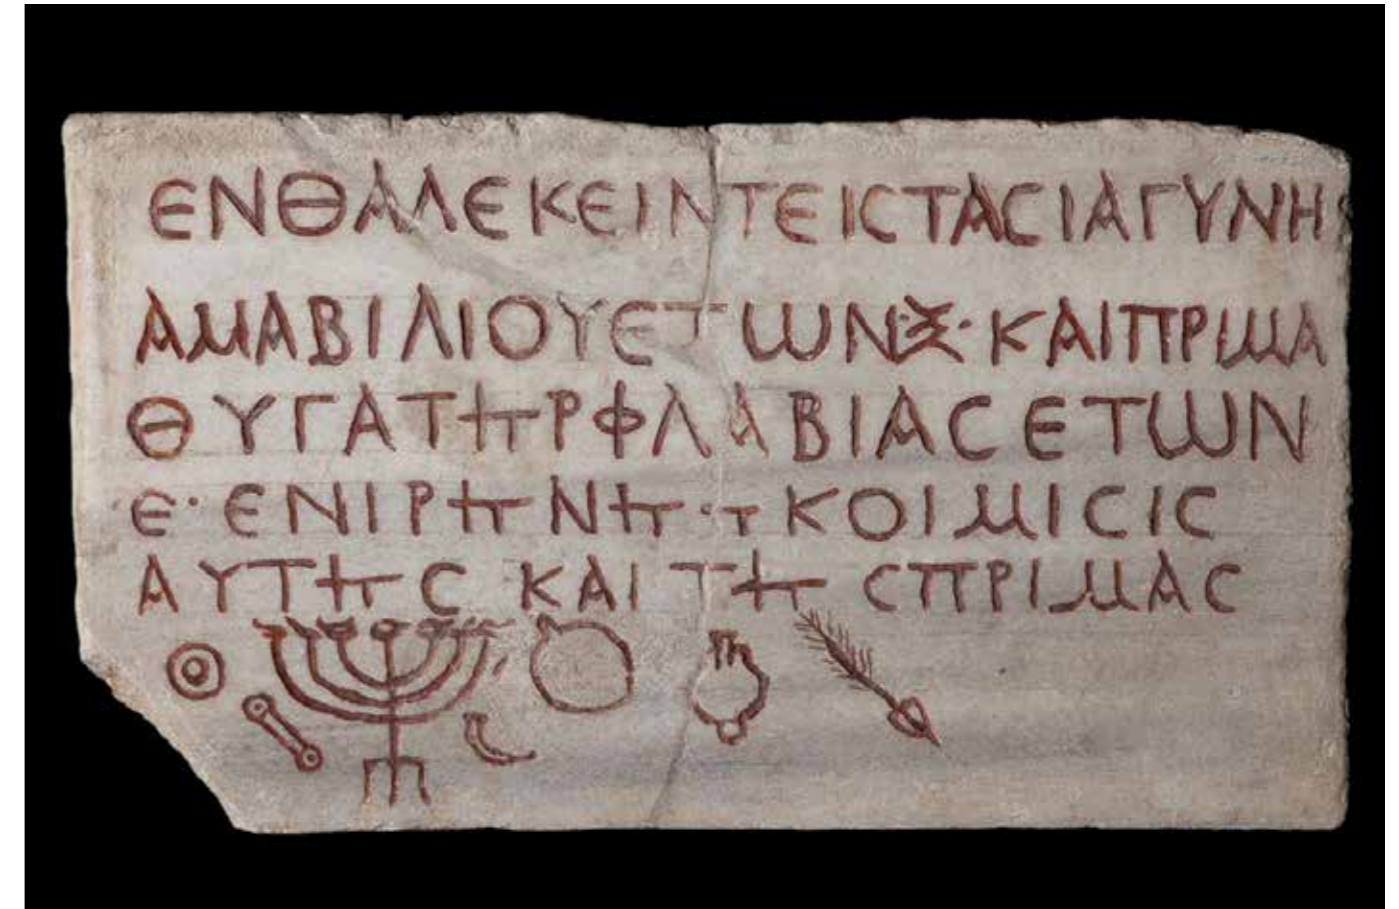 ΕΝΘΑΛΕΚΕΙΝΤΕΙCΤΑCΙΑΓΥΝΗ
ΑΜΑΒΙΛΙΟΥΕΤΩΝ·Ξ·ΚΑΙΠΡΙΜΑ
ΘΥΓΑΤΗΡΦΛΑΒΙΑCΕΤΩΝ
·Ε·ΕΝΙΡΗΝΗ·Η ΚΟΙΜΙCΙC
ΑΥΤΗC ΚΑΙ ΤΗCΠΡΙΜΑC